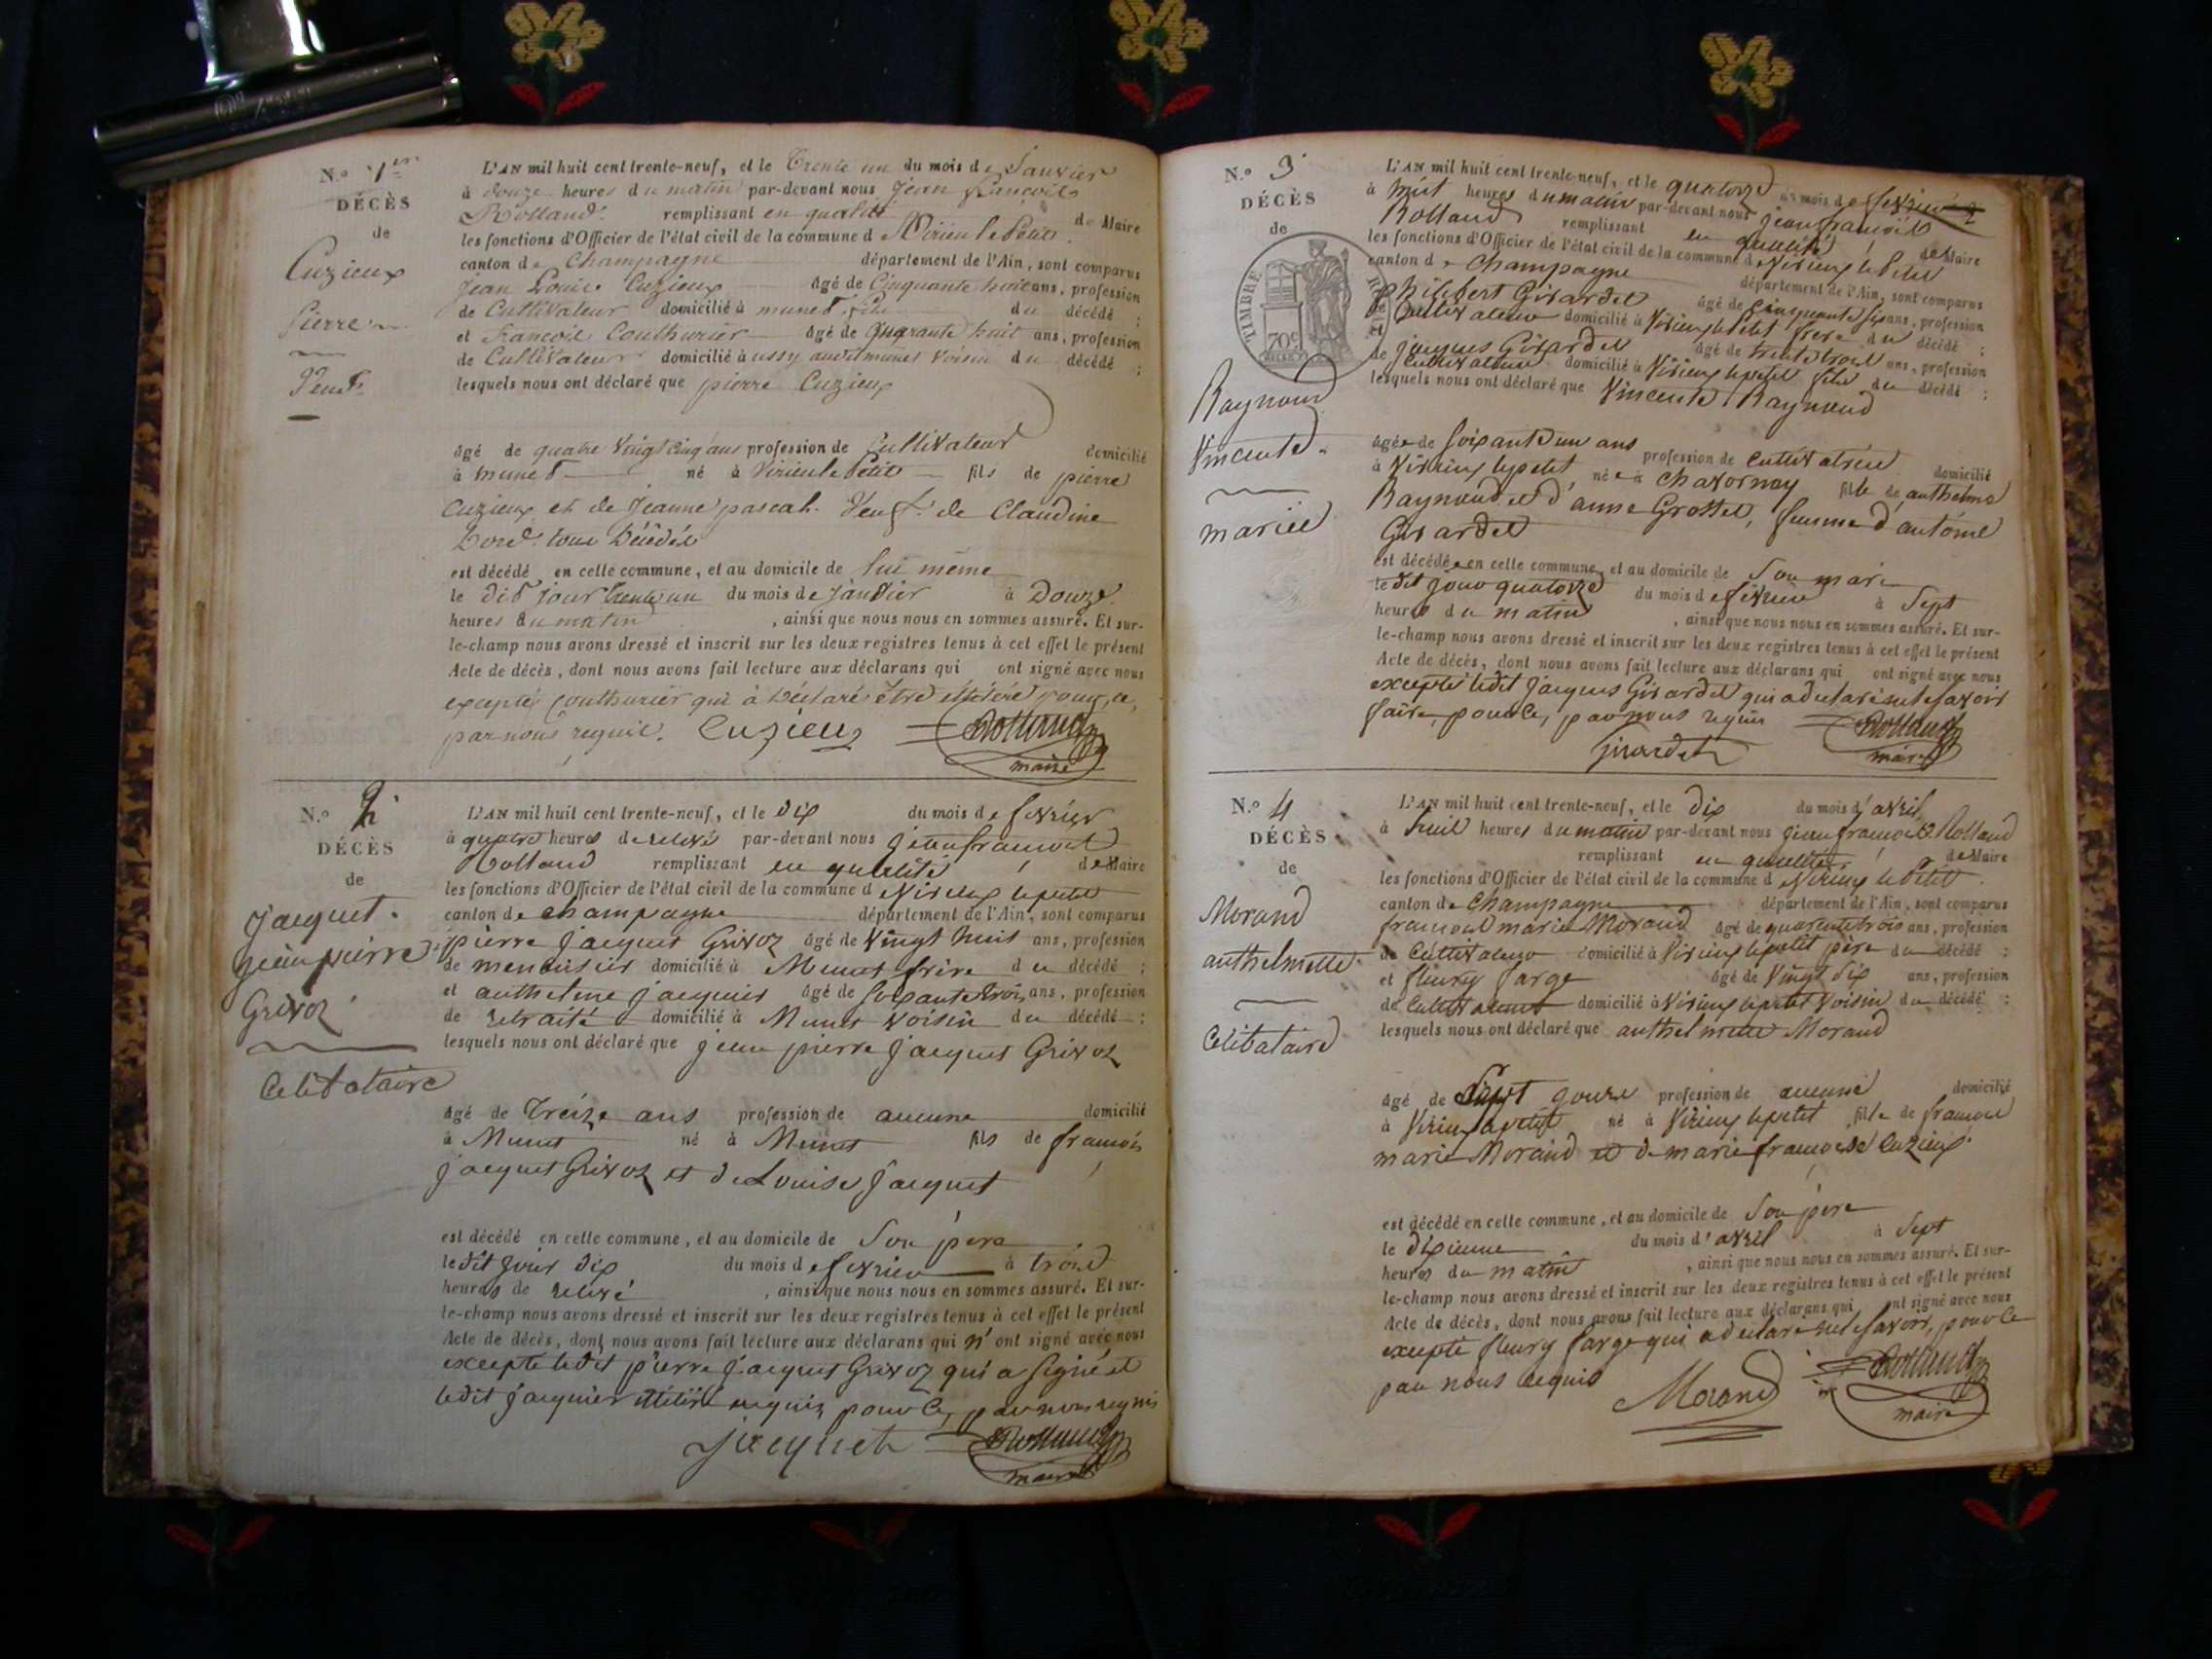 N.º 1er
DÉCÈS
de
Cuzieux
Pierre
Veuf
L'AN mil huit cent trente-neuf, et le Trente un du mois de Janvier
à douze heures du matin par-devant nous Jean François
Rolland remplissant en qualité de Maire
les fonctions d'Officier de l'état civil de la commune d Virieu le Petit
canton de Champagne département de l'Ain, sont comparus
Jean Louis Cuzieux âgé de Cinquante huit ans, profession
de Cultivateur domicilié à munet fils du décédé ;
et François Couthurier âgé de Quarante huit ans, profession
de Cultivateur domicilié à ussy audit munet Voisin du décédé ;
lesquels nous ont déclaré que pierre Cuzieux
âgé de quatre Vingt Cinq ans profession de Cultivateur domicilié
à munet né à Virieu le Petit fils de pierre
Cuzieux et de Jeanne pascal. Veuf de Claudine
Bord. tous Décédés
est décédé en cette commune, et au domicile de lui même
le dit jour trente un du mois de janvier à Douze
heures du matin , ainsi que nous nous en sommes assuré. Et sur-
le-champ nous avons dressé et inscrit sur les deux registres tenus à cet effet le présent
Acte de décès, dont nous avons fait lecture aux déclarans qui ont signé avec nous
excepté Couthurier qui à Déclaré Etre illétéré pour ce,
par nous requis. Cuzieux Rolland
maire
N.º 2
DÉCÈS
de
jacquet
jean pierre
Grivoz
Celibataire
L'AN mil huit cent trente-neuf, et le dix du mois de fevrier
à quatre heures de relevé par-devant nous jean francois
Rolland remplissant en qualité de Maire
les fonctions d'Officier de l'état civil de la commune d Virieux le petit
canton de champagne département de l'Ain, sont comparus
pierre jacquet Grivoz âgé de Vingt huit ans, profession
de menuisier domicilié à Munet frère du décédé ;
et anthelme jacquier âgé de soixante trois ans, profession
de retraité domicilié à Munet voisin du décédé ;
lesquels nous ont déclaré que jean pierre jacquet Grivoz
âgé de treize ans profession de aucune domicilié
à Munet né à Munet fils de francois
jacquet Grivoz et de Louise jacquet
est décédé en cette commune, et au domicile de Son père
le dit jour dix du mois de fevrier à trois
heures de relevé , ainsi que nous nous en sommes assuré. Et sur-
le-champ nous avons dressé et inscrit sur les deux registres tenus à cet effet le présent
Acte de décès, dont nous avons fait lecture aux déclarans qui n'ont signé avec nous
excepte ledit pierre jacquet Grivoz qui a signé et
ledit jacquier pour ce, par nous requis
jacquet Rolland
maire
N.º 3
DÉCÈS
de
TIMBRE ROYAL
70c
Raynoud
Vincente
mariée
L'AN mil huit cent trente-neuf, et le quatorze du mois de fevrier
à huit heures du matin par-devant nous jean francois
Rolland remplissant en qualité de Maire
les fonctions d'Officier de l'état civil de la commune d Virieux le Petit
canton de Champagne département de l'Ain, sont comparus
philibert Girardet âgé de cinquante six ans, profession
de Cultivateur domicilié à Virieux le Petit frere du décédé ;
et jacques Girardet âgé de trente trois ans, profession
de Cultivateur domicilié à Virieux le petit fils du décédé ;
lesquels nous ont déclaré que Vincente Raynoud
âgée de soixante un ans profession de cultivatrice domicilié
à Virieux le petit née à Chavornay fille de anthelme
Raynoud et d'anne Grossel, femme d'antoine
Girardet
est décédée en cette commune, et au domicile de Son mari
le dit jour quatorze du mois de fevrier à Sept
heures du matin , ainsi que nous nous en sommes assuré. Et sur-
le-champ nous avons dressé et inscrit sur les deux registres tenus à cet effet le présent
Acte de décès, dont nous avons fait lecture aux déclarans qui ont signé avec nous
excepté ledit jacques Girardet qui a declaré ne le savoir
faire, pour ce, par nous requis Rolland
Girardet maire
N.º 4
DÉCÈS
de
Morand
anthelmette
Celibataire
L'AN mil huit cent trente-neuf, et le dix du mois d'avril
à huit heures du matin par-devant nous jean francois Rolland
remplissant en qualité de Maire
les fonctions d'Officier de l'état civil de la commune d Virieux le Petit
canton de Champagne département de l'Ain, sont comparus
francois marie Morand âgé de quarente trois ans, profession
de Cultivateur domicilié à Virieux le petit père du décédé ;
et fleury farge âgé de Vingt dix ans, profession
de Cultivateur domicilié à Virieux le petit Voisin du décédé ;
lesquels nous ont déclaré que anthelmette Morand
âgé de Sept jours profession de aucune domicilié
à Virieux le petit né à Virieux le petit fille de francois
marie Morand et de marie francoise Cuzieux
est décédé en cette commune, et au domicile de Son père
le dixieme du mois d'avril à Sept
heures du matin , ainsi que nous nous en sommes assuré. Et sur-
le-champ nous avons dressé et inscrit sur les deux registres tenus à cet effet le présent
Acte de décès, dont nous avons fait lecture aux déclarans qui ont signé avec nous
excepté fleury farge qui a declaré ne le savoir, pour ce
par nous requis Morand Rolland
maire